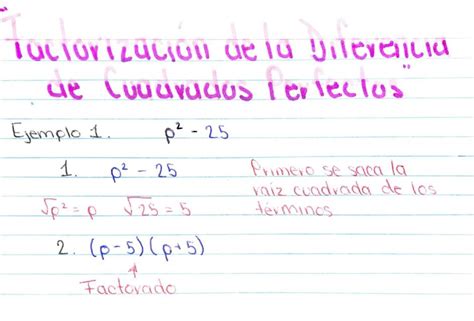 "Factorización de la Diferencia
de Cuadrados Perfectos"
Ejemplo 1. p² - 25
1. p² - 25 Primero se saca la
raíz cuadrada de los
√p² = p √25 = 5 términos
2. (p-5)(p+5)
Factorado